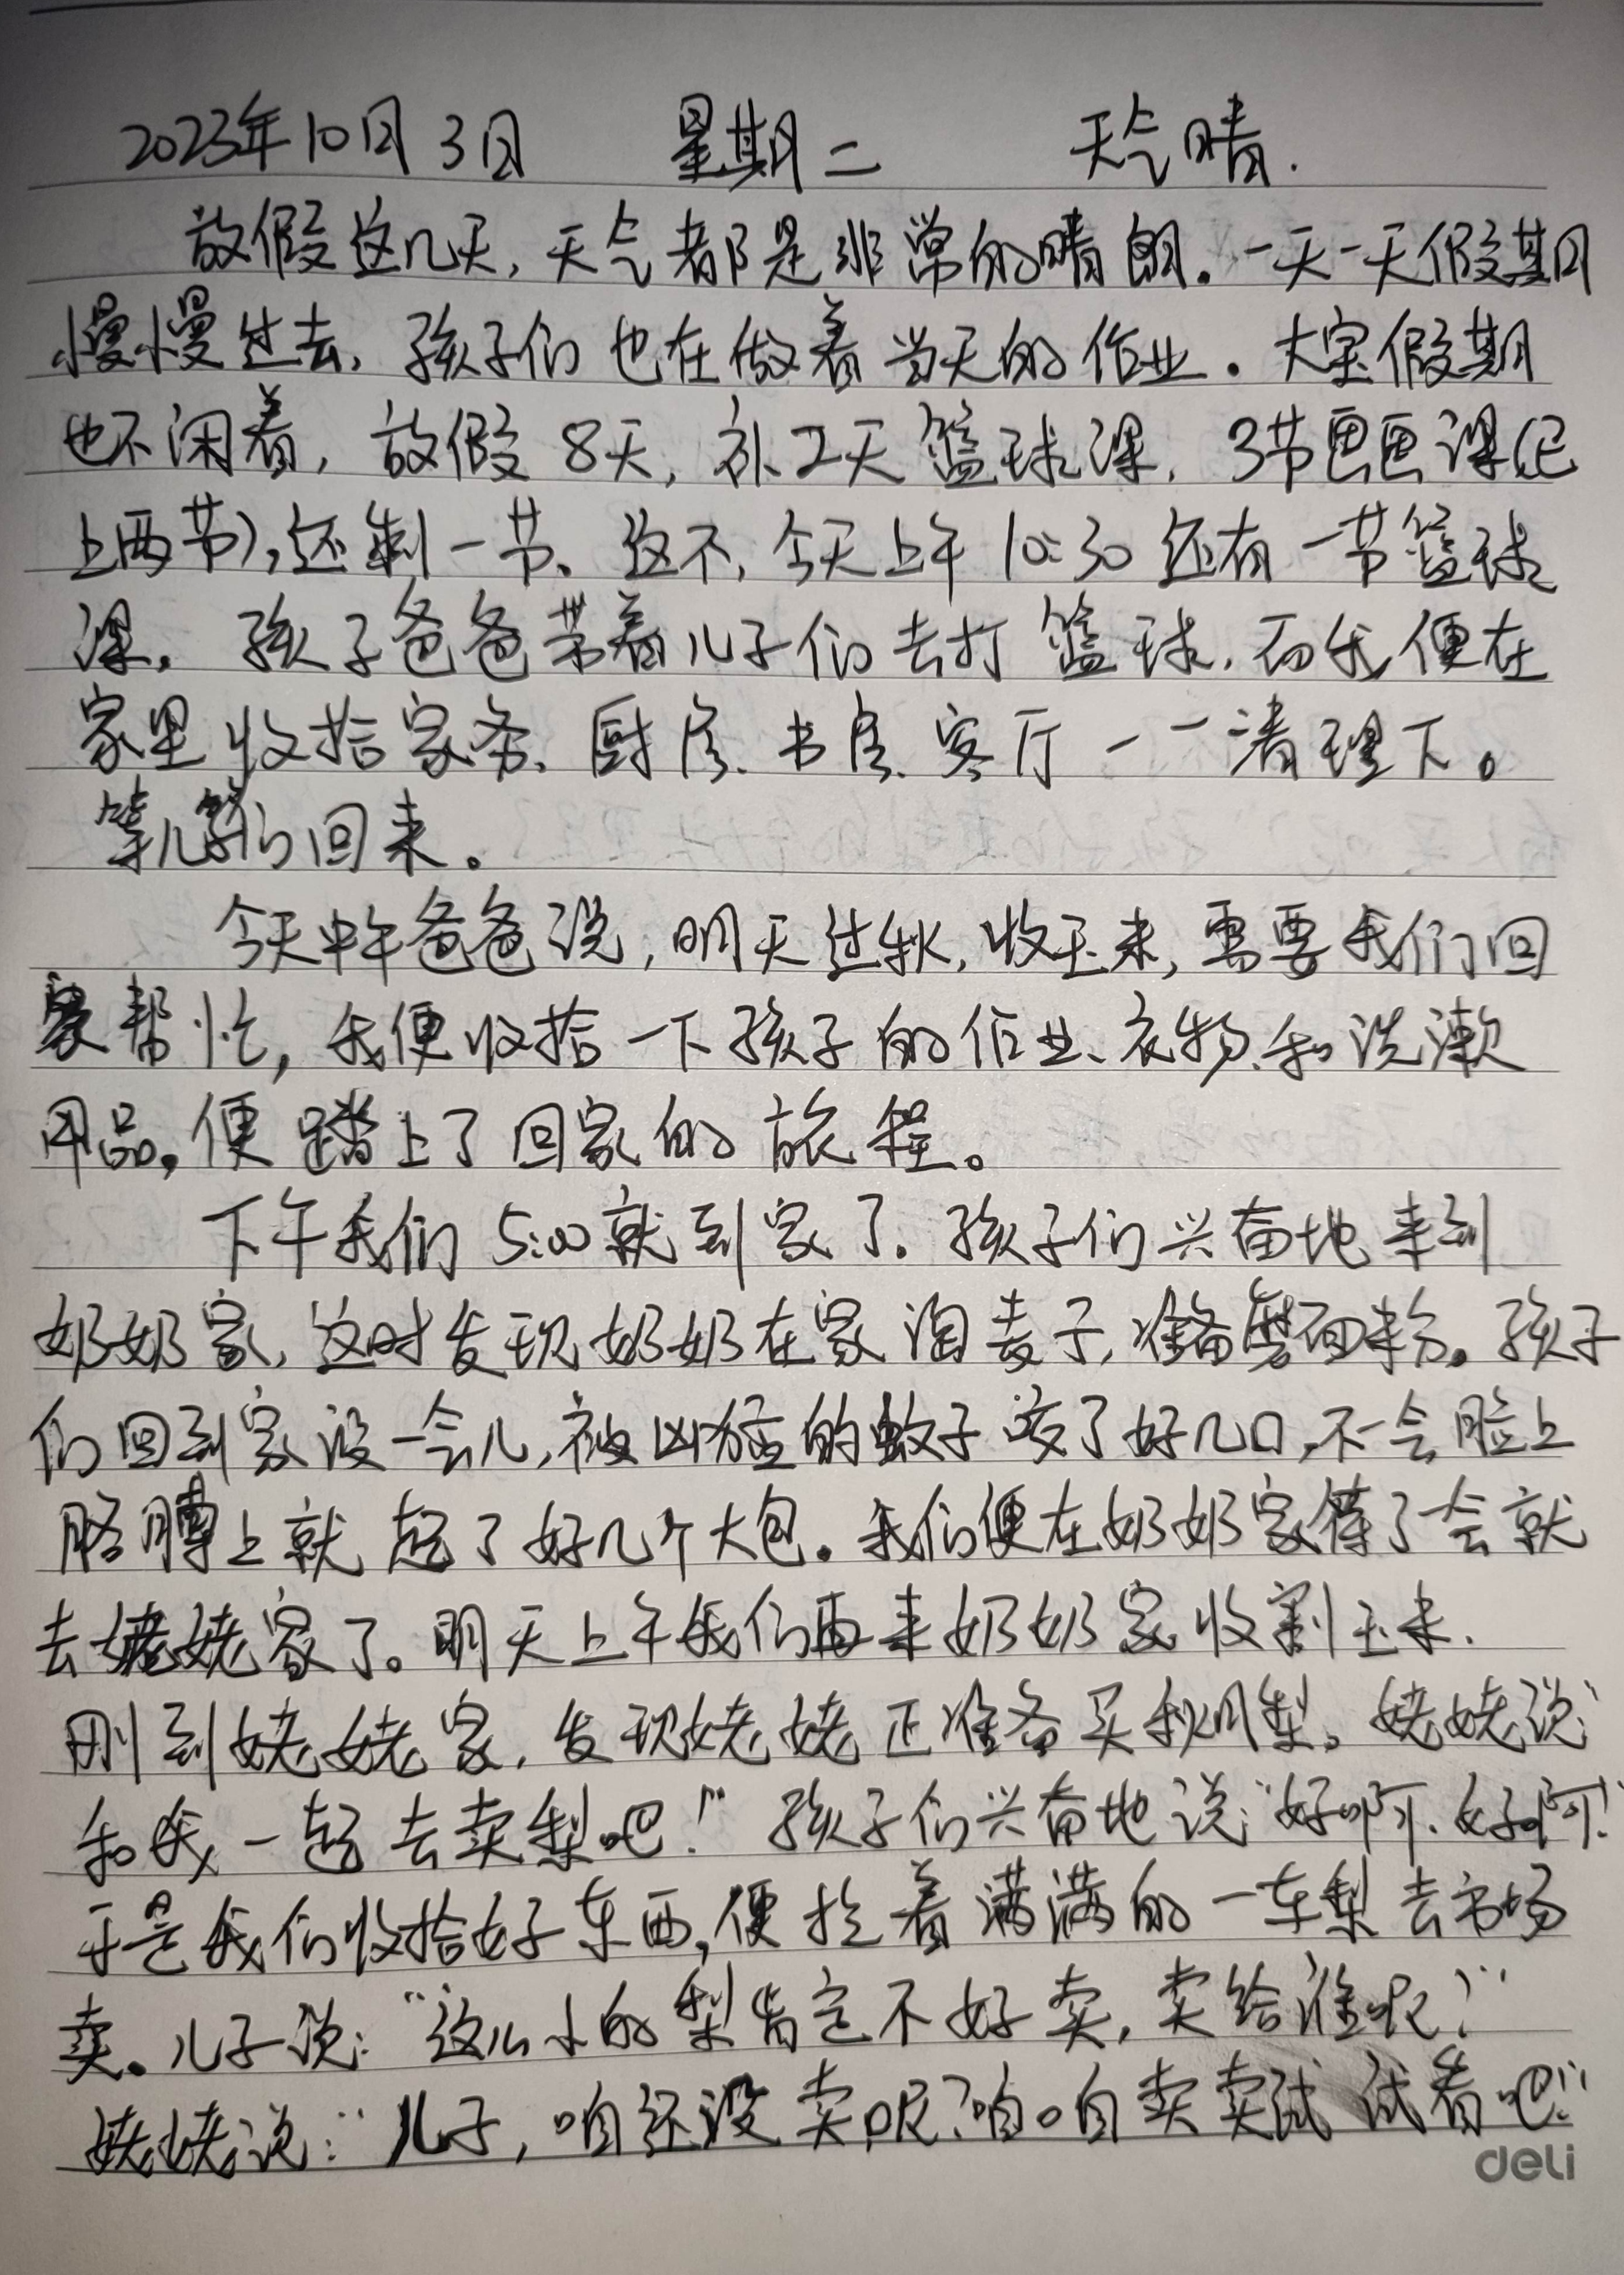 2023年10月3日 星期二 天气晴.
放假这几天,天气都是非常的晴朗。一天一天假期
慢慢过去,孩子们也在做着当天的作业。大宝假期
也不闲着,放假8天,补2天篮球课,3节画画课(已
上两节),还剩一节。这不,今天上午10:30还有一节篮球
课。孩子爸爸带着儿子们去打篮球,而我便在
家里收拾家务、厨房、书房、客厅一一清理下。
等儿子们回来。
今天中午爸爸说,明天过秋,收玉米,需要我们回
家帮忙,我便收拾一下孩子的作业、衣物、和洗漱
用品,便踏上了回家的旅程。
下午我们5:00就到家了。孩子们兴奋地来到
奶奶家,这时发现奶奶在家淘麦子,准备磨面粉。孩子
们回到家没一会儿,被凶猛的蚊子咬了好几口,不一会脸上
胳膊上就起了好几个大包。我们便在奶奶家待了会就
去姥姥家了。明天上午我们再来奶奶家收割玉米.
刚到姥姥家,发现姥姥正准备买秋月梨。姥姥说:
和我一起去卖梨吧!”孩子们兴奋地说:“好啊、好啊!
于是我们收拾好东西,便拉着满满的一车梨去市场
卖。儿子说:“这么小的梨肯定不好卖,卖给谁呢?”
姥姥说:“儿子,咱还没卖呢?咱咱卖卖试试看吧!”
deli